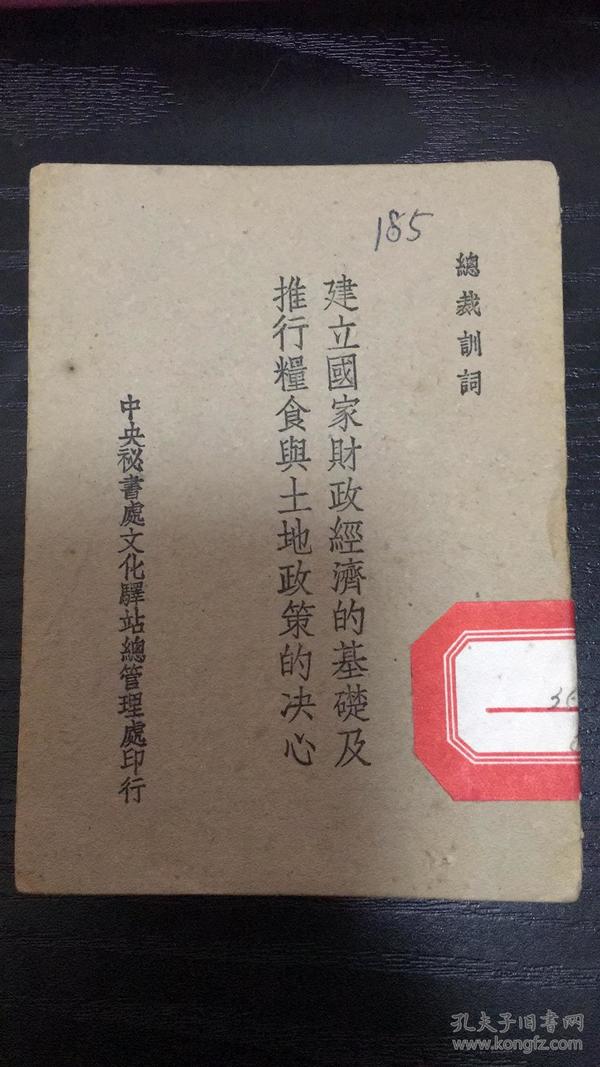 185
總裁訓詞
建立國家財政經濟的基礎及
推行糧食與土地政策的决心
中央祕書處文化驛站總管理處印行
孔夫子旧书网
www.kongfz.com